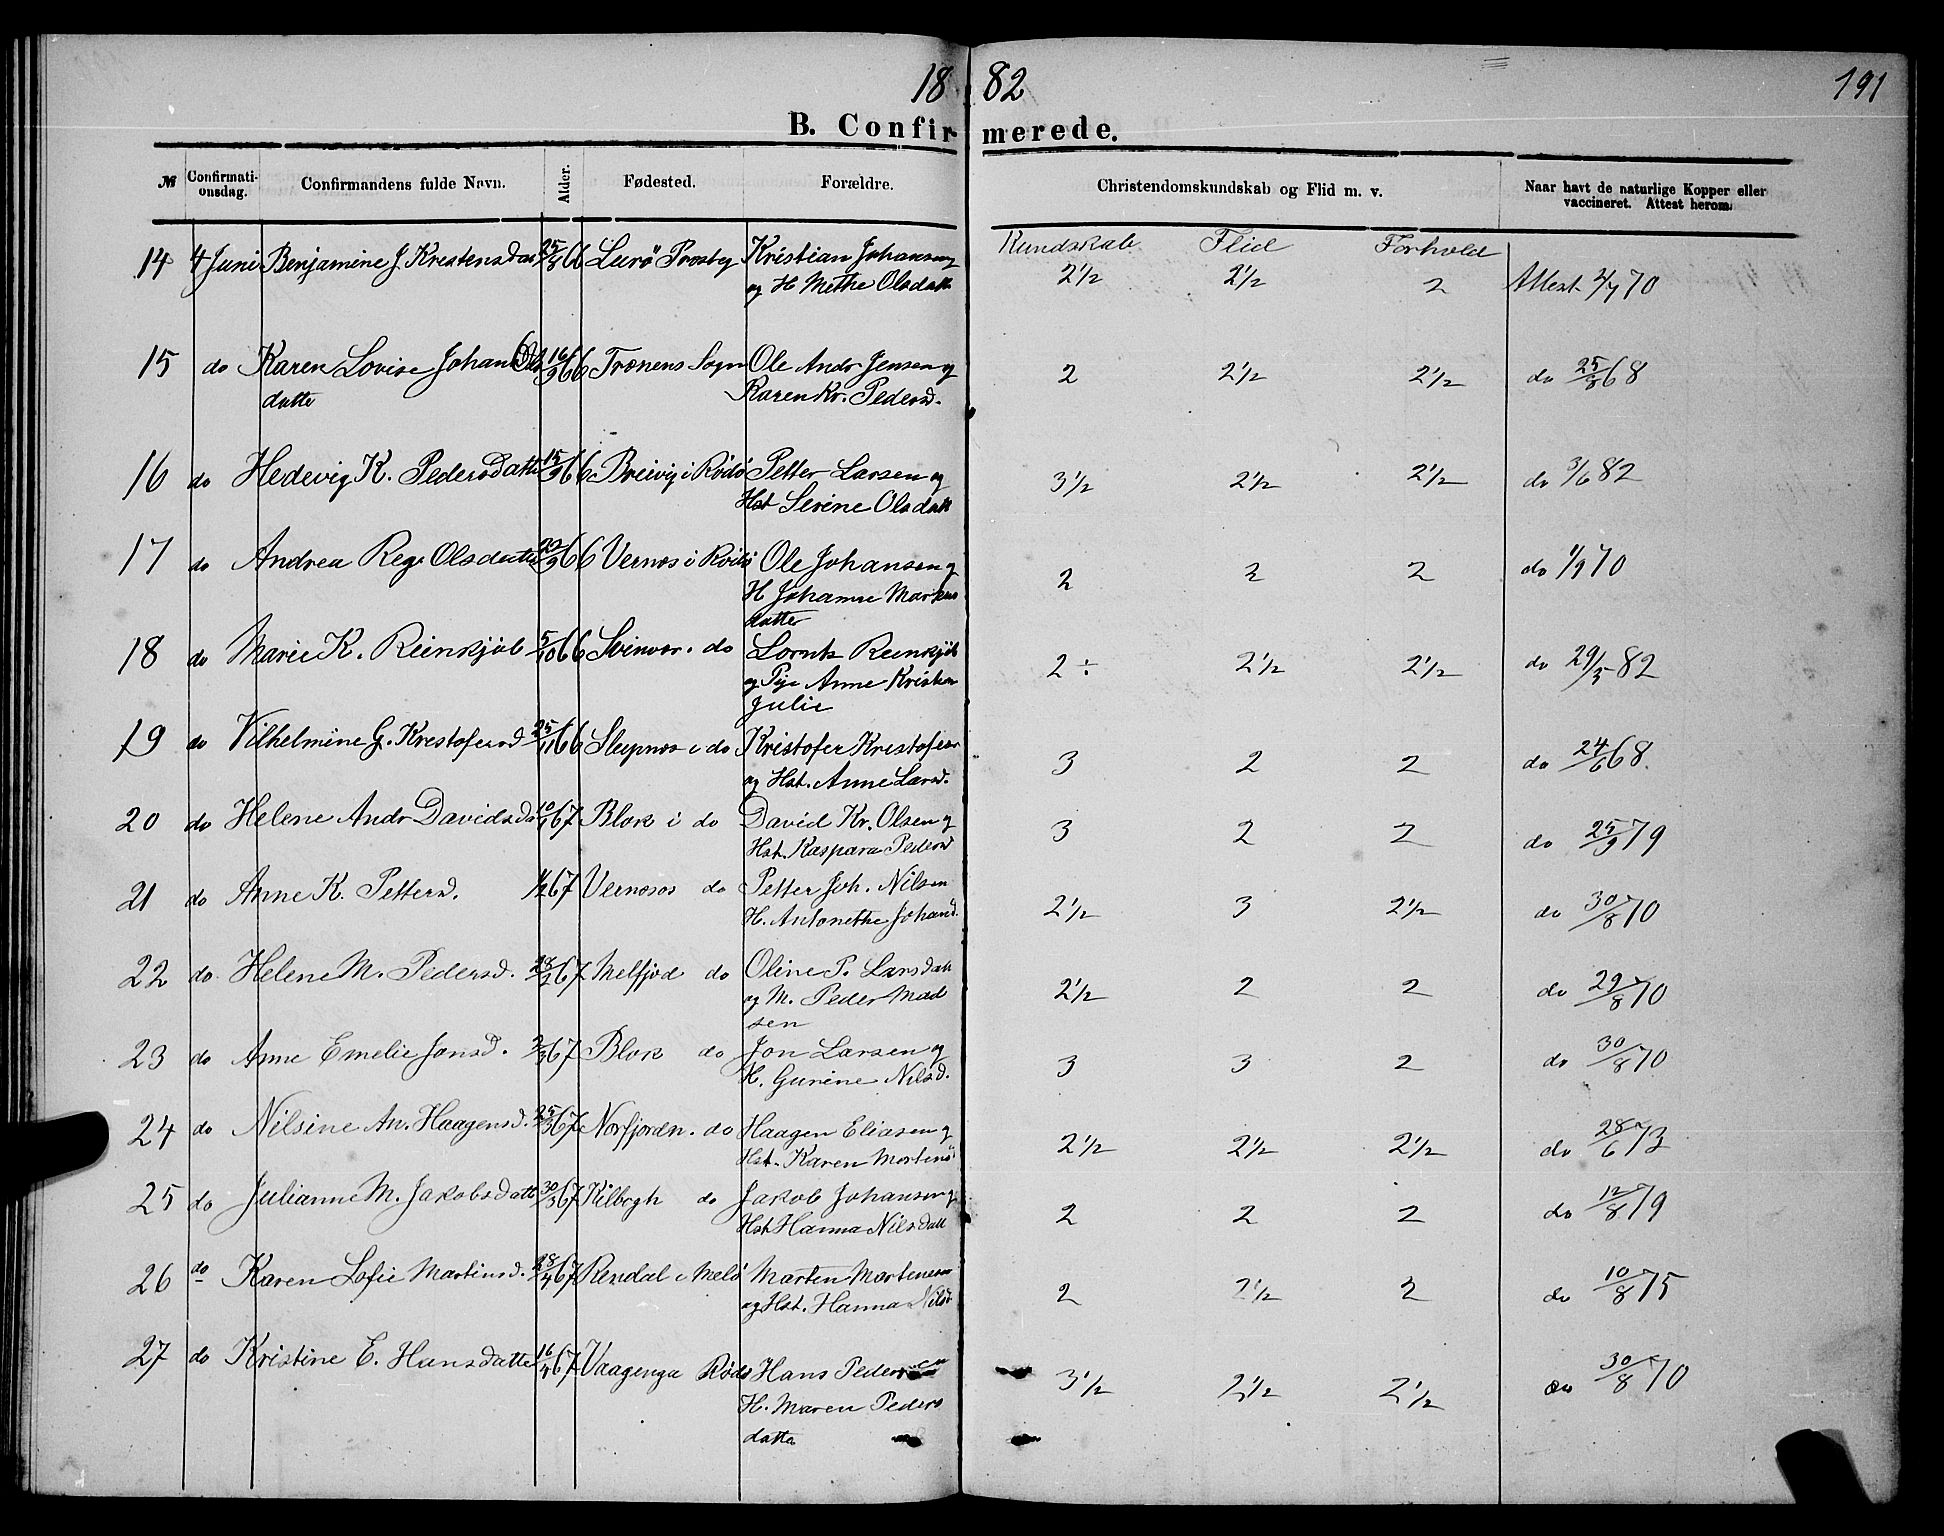 18 82 191
B. Confirmerede.
№ Confirmationsdag. Confirmandens fulde Navn. Alder. Fødested. Forældre. Christendomskundskab og Flid m. v. Naar havt de naturlige Kopper eller vaccineret. Attest herom.
Kundskab Flid Forhold
14 4 Juni Benjamine J. Krestensdat 25/8 66 Lurö Prestg Kristian Johansen og 2½ 2½ 2 Attest 2/7 70
og H Methe Olsdatt
15 do Karen Lovise Johan Ols 16/9 66 Trænens Sogn Ole Andr Jensen og 2 2½ 2½ do 25/8 68
datte Karen Kr. Pedersd.
16 do Hedevig K. Pedersdatte 15/9 66 Breivig i Rödö Petter Larsen og 3½ 2½ 2½ do 3/6 82
Hst Serine Olsdatt
17 do Andrea Reg. Olsdatte 22/9 66 Vernes i Rödö Ole Johansen og 2 2 2 do 1/9 70
H Johanne Markus
datter
18 do Marie K. Reinskjöb 5/10 66 Svinvær. do Lornts Reinskjöb 2 ÷ 2½ 2½ do 29/3 82
og Pige Anne Kristian
Julie
19 do Vilhelmine G. Krestofersd 25/11 66 Slepnes i do Kristofer Kristofers 3 2 2 do 24/6 68.
og Hst. Anne Larsd.
20 do Helene Andr Davidsda 10/1 67 Blok i do David Kr. Olsen og 3 2 2 do 25/9 79
Hst. Kaspara Pedersd
21 do Anne K. Pettersd. 1/2 67 Vernesos do Petter Joh. Nilsen 2½ 3 2½ do 30/8 70
H. Antonethe Johansd.
22 do Helene M. Pedersd. 28/2 67 Melfjord do Oline P. Larsdatt 2½ 2 2 do 29/8 70
og M. Peder Mad
sen
23 do Anne Emelie Jonsd. 2/3 67 Blok do Jon Larsen og 3 3 2 do 30/8 70
H. Gurine Nilsd.
24 do Nilsine An. Haagensd. 25/3 67 Norfjorden. do Haagen Eliasen og 2½ 2½ 2½ do 28/6 73
Hst. Karen Mortensd
25 do Julianne M. Jakobsdatte 30/3 67 Kilbogh do Jakob Johansen og 2 2 2 do 12/8 79
Hst Hanna Nilsdatt
26 do Karen Sofie Martinsd. 28/4 67 Rendal i Melö Morten Mortensen 2 2½ 2 do 10/8 75
og Hst. Hanna Nilsd
27 do Kristine E. Hansdatte 16/4 67 Vaagenga Rödö Hans Pedersen 3½ 2½ 2½ do 30/8 70
H. Maren Peders
datte